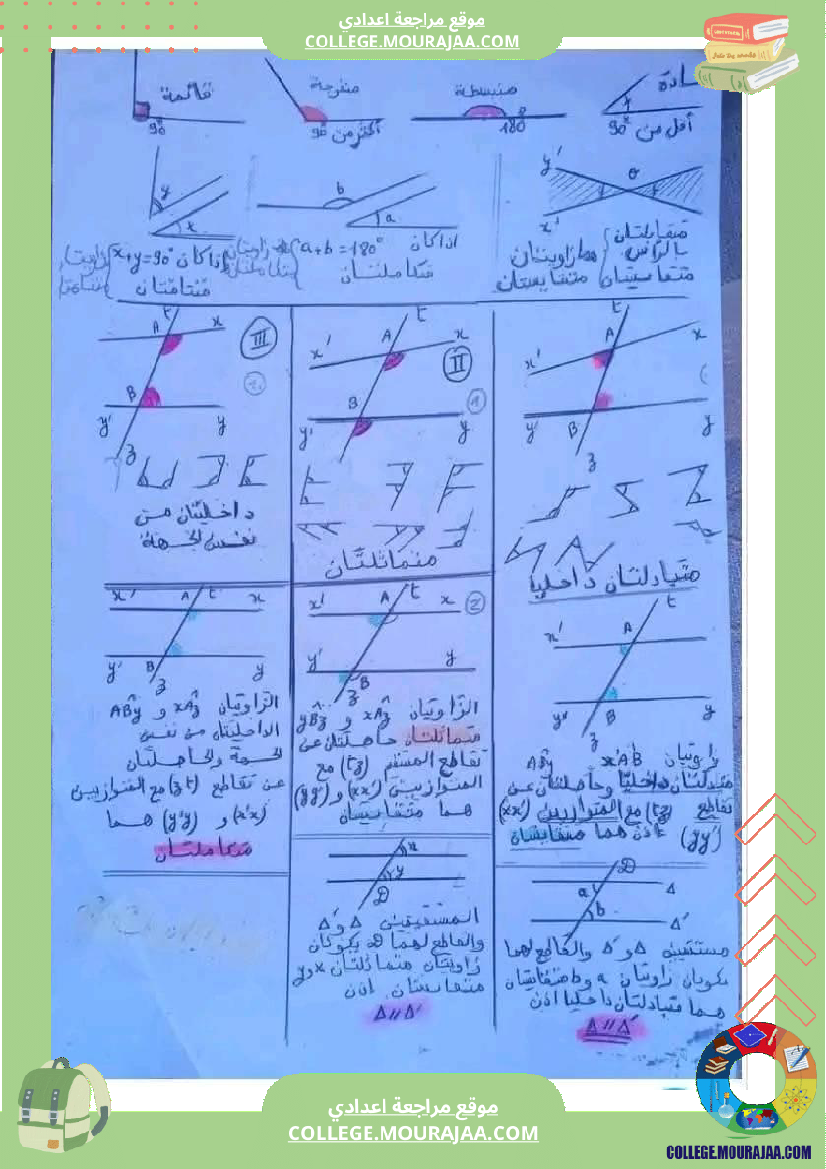 موقع مراجعة اعدادي
COLLEGE.MOURAJAA.COM
حادة
أقل من 90°
منبسطة
180°
منفرجة
أكثر من 90°
قائمة
90°
y'
O
x'
متقابلتان
بالرأس
متقايستان
هما زاويتان
متقايستان
b
a
اذا كان a+b=180°
متكاملتان
y
x
اذا كان x+y=90°
متتامتان
t
A
x
x'
y'
B
y
z
متبادلتان داخليا
II
1
t
A
x
x'
B
y'
y
متماثلتان
III
t
A
x
B
y'
y
z
داخليتان من
نفس الجهة
t
x'
A
y'
B
y
z
زاويتان x'AB ABy
متبادلتان داخليا وحاصلتان عن
تقاطع (tz) مع المتوازيين (xx')
(yy') اذن هما متقايستان
2
x'
A
t
x
y'
B
y
z
الزاويتان xAz و yBz
متماثلتان حاصلتان عن
تقاطع المستقيم (tz) مع
المتوازيين (xx') و (yy')
هما متقايستان
x'
A
t
x
y'
B
y
z
الزاويتان xAz و ABy
الداخليتان من نفس
الجهة والحاصلتان
عن تقاطع (zt) مع المتوازيين
(x'x) و (y'y) هما
متكاملتان
D
a
Δ
b
Δ'
مستقيمين Δ و Δ' والقاطع لهما
يكونان زاويتان a و b متقايستان
هما متبادلتان داخليا اذن
Δ // Δ'
x
y
D
المستقيمين Δ و Δ'
والقاطع لهما D يكونان
زاويتان متماثلتان x و y
متقايستان اذن
Δ // Δ'
موقع مراجعة اعدادي
COLLEGE.MOURAJAA.COM
COLLEGE.MOURAJAA.COM